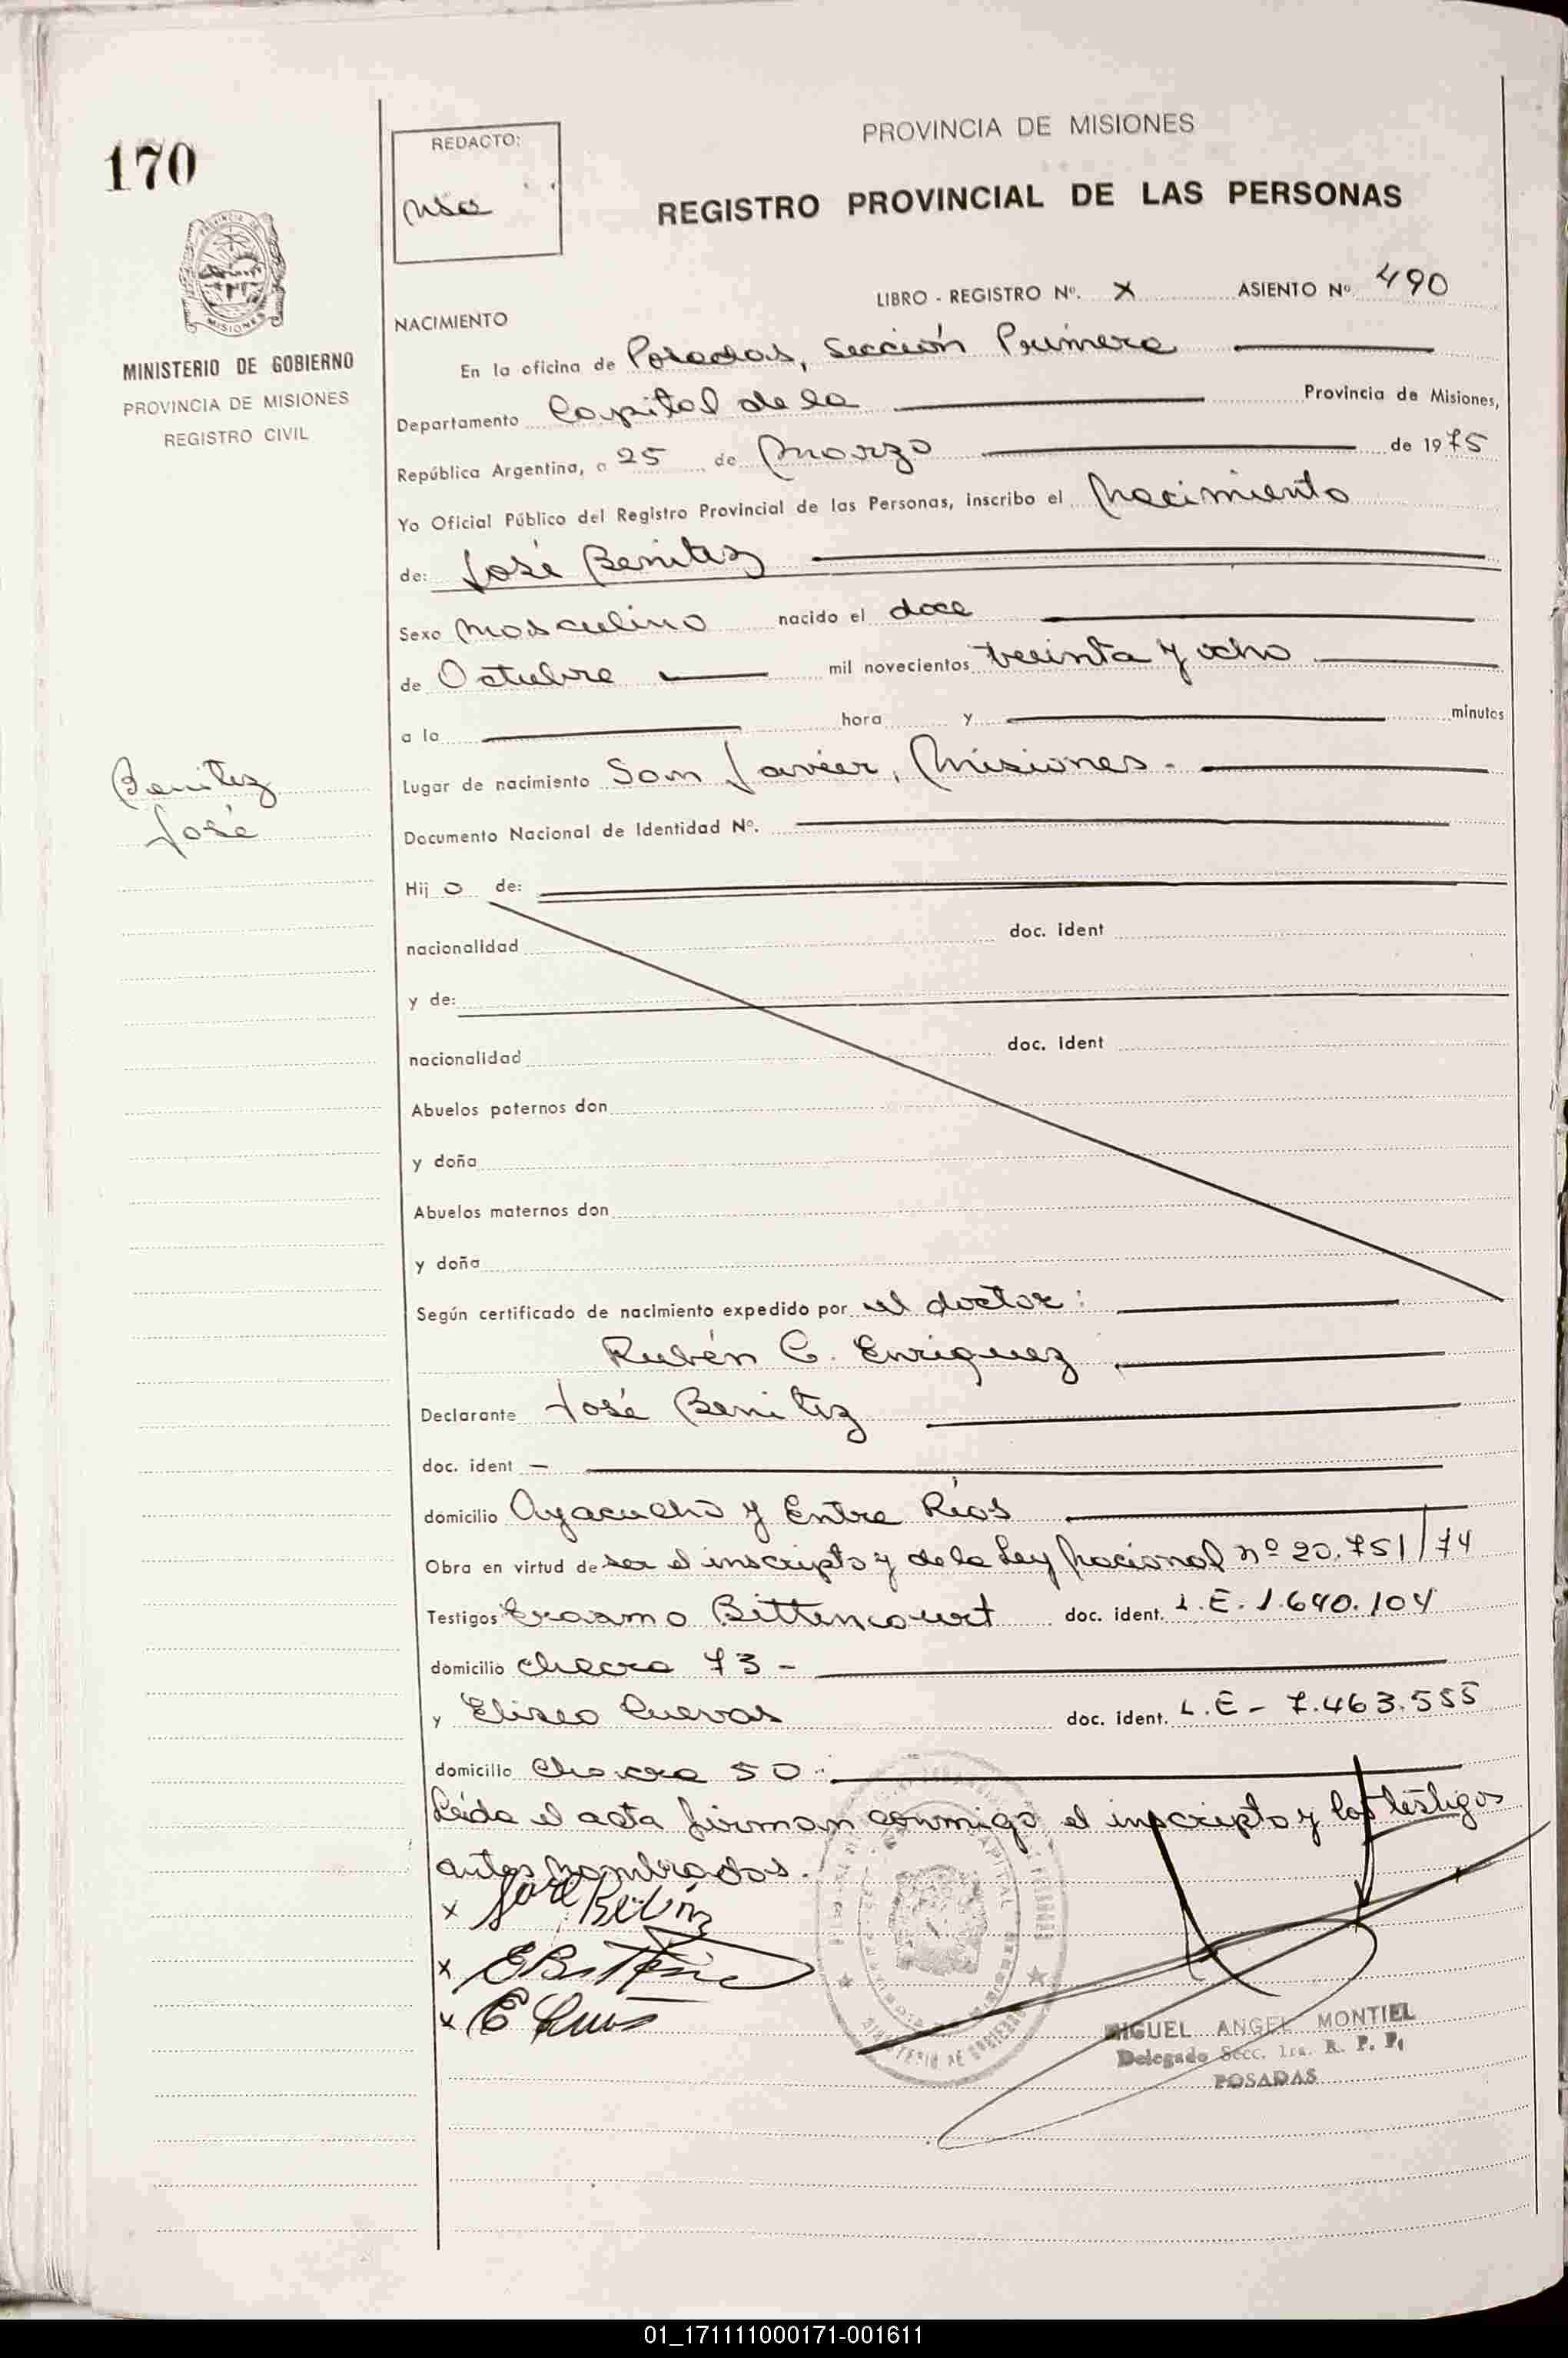 170
REDACTO:
PROVINCIA DE MISIONES
REGISTRO PROVINCIAL DE LAS PERSONAS
MINISTERIO DE GOBIERNO
PROVINCIA DE MISIONES
REGISTRO CIVIL
LIBRO - REGISTRO Nº. X ASIENTO Nº 490
NACIMIENTO
En la oficina de Posadas, Sección Primera
Departamento Capital de la Provincia de Misiones,
República Argentina, a 25 de Marzo de 1975
Yo Oficial Público del Registro Provincial de las Personas, inscribo el Nacimiento
de: José Benitez
Sexo Masculino nacido el doce
de Octubre mil novecientos treinta y ocho
a la hora y minutos
Benitez
José
Lugar de nacimiento San Javier, Misiones.
Documento Nacional de Identidad Nº.
Hij o de:
nacionalidad doc. ident
y de:
nacionalidad doc. ident
Abuelos paternos don
y doña
Abuelos maternos don
y doña
Según certificado de nacimiento expedido por el doctor:
Rubén C. Enriquez
Declarante José Benitez
doc. ident —
domicilio Ayacucho y Entre Ríos
Obra en virtud de ser el inscripto y de la Ley Nacional nº 20.751/74
Testigos Erasmo Bittencourt doc. ident. L.E. 1.640.104
domicilio chacra 73 -
y Eliseo Cuevas doc. ident. L.E - 7.463.555
domicilio Chacra 50.
Leída el acta firman conmigo el inscripto y los testigos
antes nombrados.
x José Benitez
x
x
MIGUEL ANGEL MONTIEL
Delegado Secc. 1ra. R. P. P.
POSADAS
01_171111000171-001611